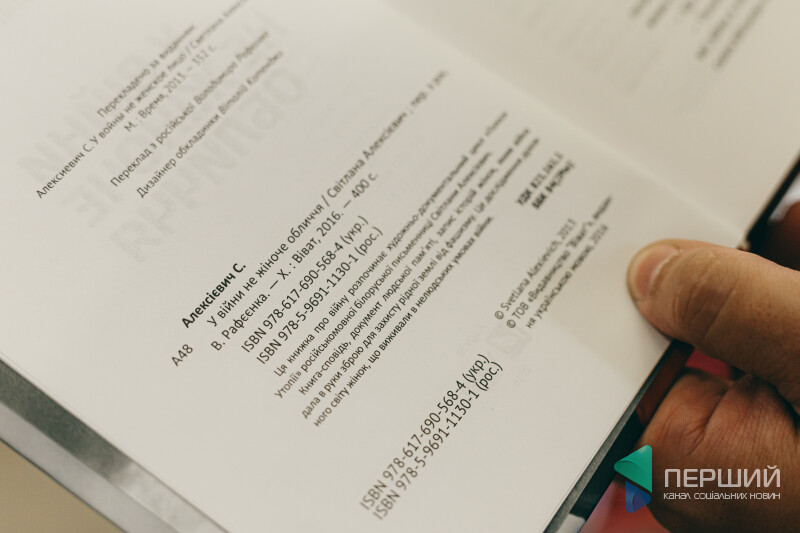 Перекладено за виданням:
Алексиевич С. У войны не женское лицо / Светлана
М. : Время, 2013. — 352 с.
Переклад з російської Володимира Рафєєнка
Дизайнер обкладинки Віталій Котенджи
Алексієвич С.
А48
У війни не жіноче обличчя / Світлана Алексієвич ; пер. з рос.
В. Рафєєнка. — Х. : Віват, 2016. — 400 с.
ISBN 978-617-690-568-4 (укр.)
ISBN 978-5-9691-1130-1 (рос.)
Ця книжка про війну розпочинає художньо-документальний цикл «Голоси
Утопії» російськомовної білоруської письменниці Світлани Алексієвич.
Книга-сповідь, документ людської пам'яті, запис історій жінок, яким війна
дала в руки зброю для захисту рідної землі від фашизму. Це дослідження
ного світу жінок, що виживали в нелюдських умовах війни.
УДК 821.161.1
ББК
© Svetlana Alexievich, 2013
© ТОВ «Видавництво "Віват"», видан-
ня українською мовою, 2016
ISBN 978-617-690-568-4 (укр.)
ISBN 978-5-9691-1130-1 (рос.)
ПЕРШИЙ
КАНАЛ СОЦІАЛЬНИХ НОВИН